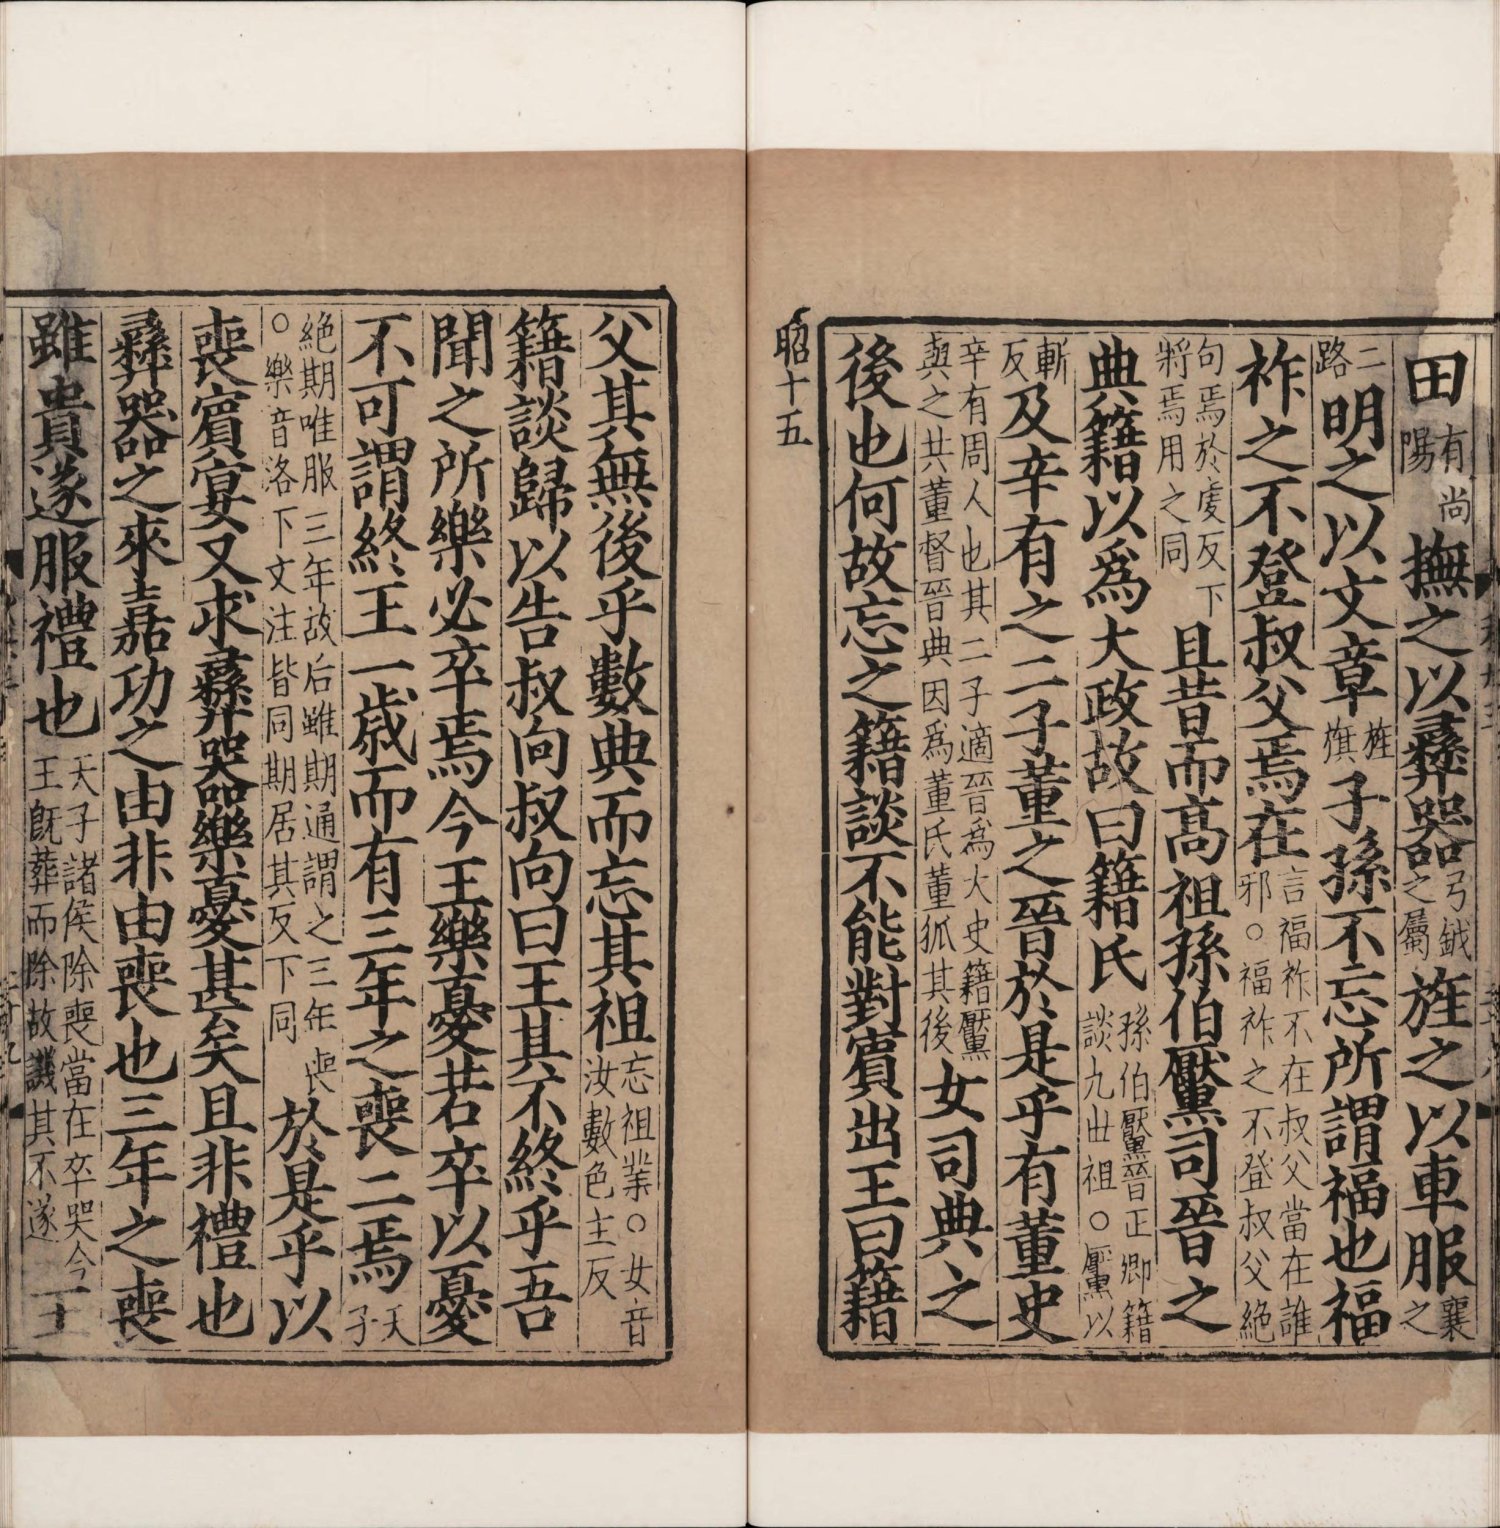 田有尚陽撫之以彝器弓鉞之屬旌之以車服襄之
二路明之以文章旌旗子孫不忘所謂福也福
祚之不登叔父焉在言福祚不在叔父當在誰邪○福祚之不登叔父絕
句焉於虔反下將焉用之同且昔而高祖孫伯黶司晉之
典籍以爲大政故曰籍氏孫伯黶晉正卿籍談九世祖○黶以
斬反及辛有之二子董之晉於是乎有董史
辛有周人也其二子適晉爲大史籍黶與之共董督晉典因爲董氏董狐其後女司典之
後也何故忘之籍談不能對賓出王曰籍
昭十五
父其無後乎數典而忘其祖忘祖業○女音汝數色主反
籍談歸以告叔向叔向曰王其不終乎吾
聞之所樂必卒焉今王樂憂若卒以憂
不可謂終王一歲而有三年之喪二焉天子
絕期唯服三年故后雖期通謂之三年喪○樂音洛下文注皆同期居其反下同於是乎以
喪賓宴又求彝器樂憂甚矣且非禮也
彝器之來嘉功之由非由喪也三年之喪
雖貴遂服禮也天子諸侯除喪當在卒哭今王旣葬而除故譏其不遂王